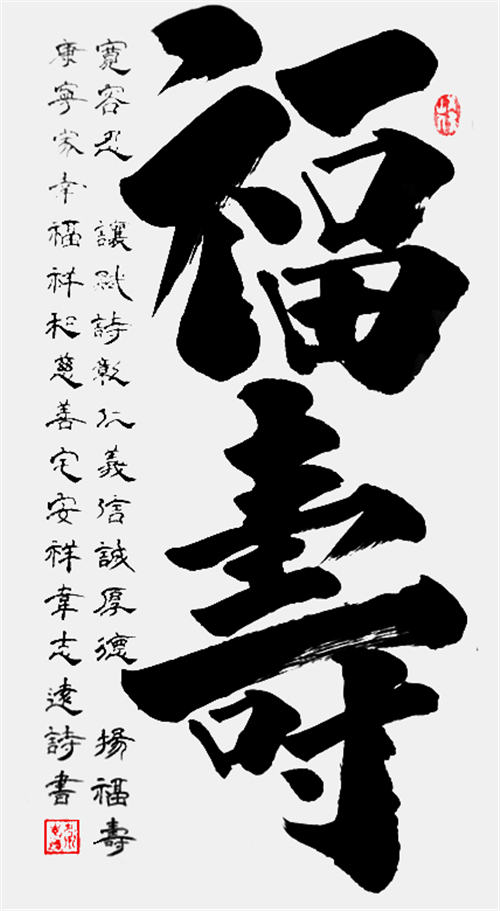 福壽
寬容忍讓賦詩彰仁義信誠厚德揚福壽
康寧家幸福祥和慈善宅安祥韋志遠詩書